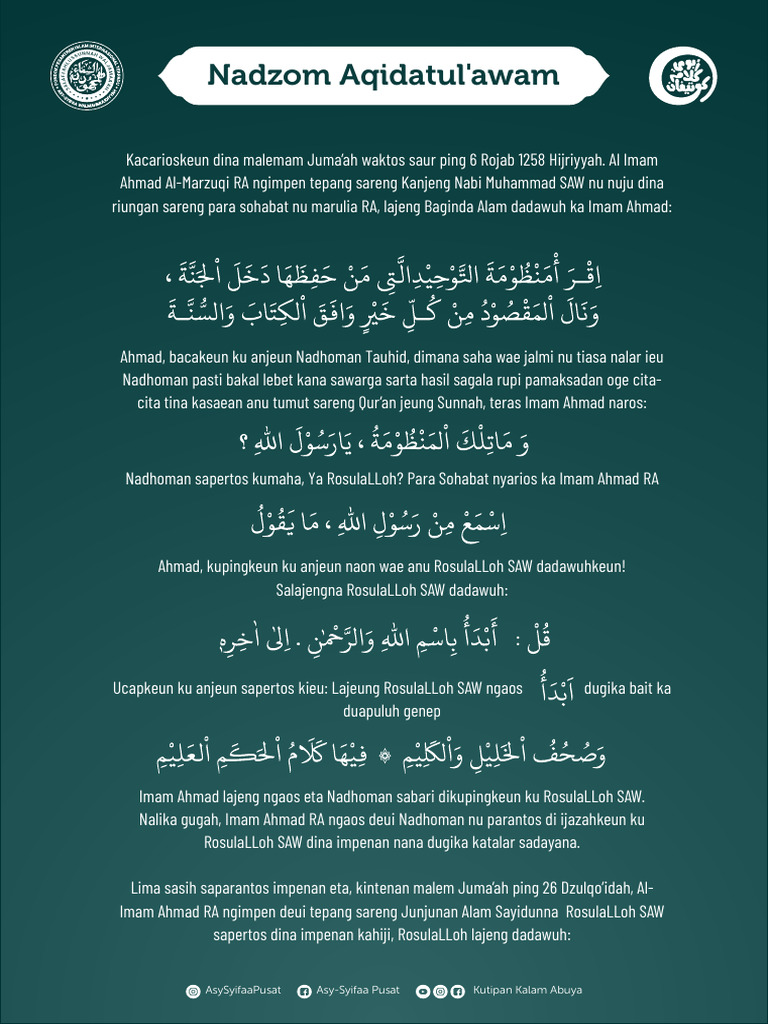 Nadzom Aqidatul'awam
Kacarioskeun dina malemam Juma'ah waktos saur ping 6 Rojab 1258 Hijriyyah. Al Imam
Ahmad Al-Marzuqi RA ngimpen tepang sareng Kanjeng Nabi Muhammad SAW nu nuju dina
riungan sareng para sohabat nu marulia RA, lajeng Baginda Alam dadawuh ka Imam Ahmad:
اِقْـرَ أْمَنْظُوْمَةَ التَّوْحِيْدِالَّتِى مَنْ حَفِظَهَا دَخَلَ اْلجَنَّةَ ،
وَنَالَ اْلمَقْصُوْدُ مِنْ كُـلِّ خَيْرٍ وَافَقَ اْلكِتَابَ وَالسُّنَّـةَ
Ahmad, bacakeun ku anjeun Nadhoman Tauhid, dimana saha wae jalmi nu tiasa nalar ieu
Nadhoman pasti bakal lebet kana sawarga sarta hasil sagala rupi pamaksadan oge cita-
cita tina kasaean anu tumut sareng Qur'an jeung Sunnah, teras Imam Ahmad naros:
وَ مَاتِلْكَ اْلمَنْظُوْمَةُ ، يَارَسُوْلَ اللهِ ؟
Nadhoman sapertos kumaha, Ya RosulaLLoh? Para Sohabat nyarios ka Imam Ahmad RA
اِسْمَعْ مِنْ رَسُوْلِ اللهِ ، مَا يَقُوْلُ
Ahmad, kupingkeun ku anjeun naon wae anu RosulaLLoh SAW dadawuhkeun!
Salajengna RosulaLLoh SAW dadawuh:
قُلْ : أَبْدَأُ بِاسْمِ اللهِ وَالرَّحْمٰنِ . اِلىٰ اٰخِرِهٖ
Ucapkeun ku anjeun sapertos kieu: Lajeung RosulaLLoh SAW ngaos اَبْدَأُ dugika bait ka
duapuluh genep
وَصُحُفُ اْلخَلِيْلِ وَاْلكَلِيْمِ ۞ فِيْهَا كَلَامُ اْلحَكَمِ اْلعَلِيْمِ
Imam Ahmad lajeng ngaos eta Nadhoman sabari dikupingkeun ku RosulaLLoh SAW.
Nalika gugah, Imam Ahmad RA ngaos deui Nadhoman nu parantos di ijazahkeun ku
RosulaLLoh SAW dina impenan nana dugika katalar sadayana.
Lima sasih saparantos impenan eta, kintenan malem Juma'ah ping 26 Dzulqo'idah, Al-
Imam Ahmad RA ngimpen deui tepang sareng Junjunan Alam Sayidunna RosulaLLoh SAW
sapertos dina impenan kahiji, RosulaLLoh lajeng dadawuh:
AsySyifaaPusat Asy-Syifaa Pusat Kutipan Kalam Abuya